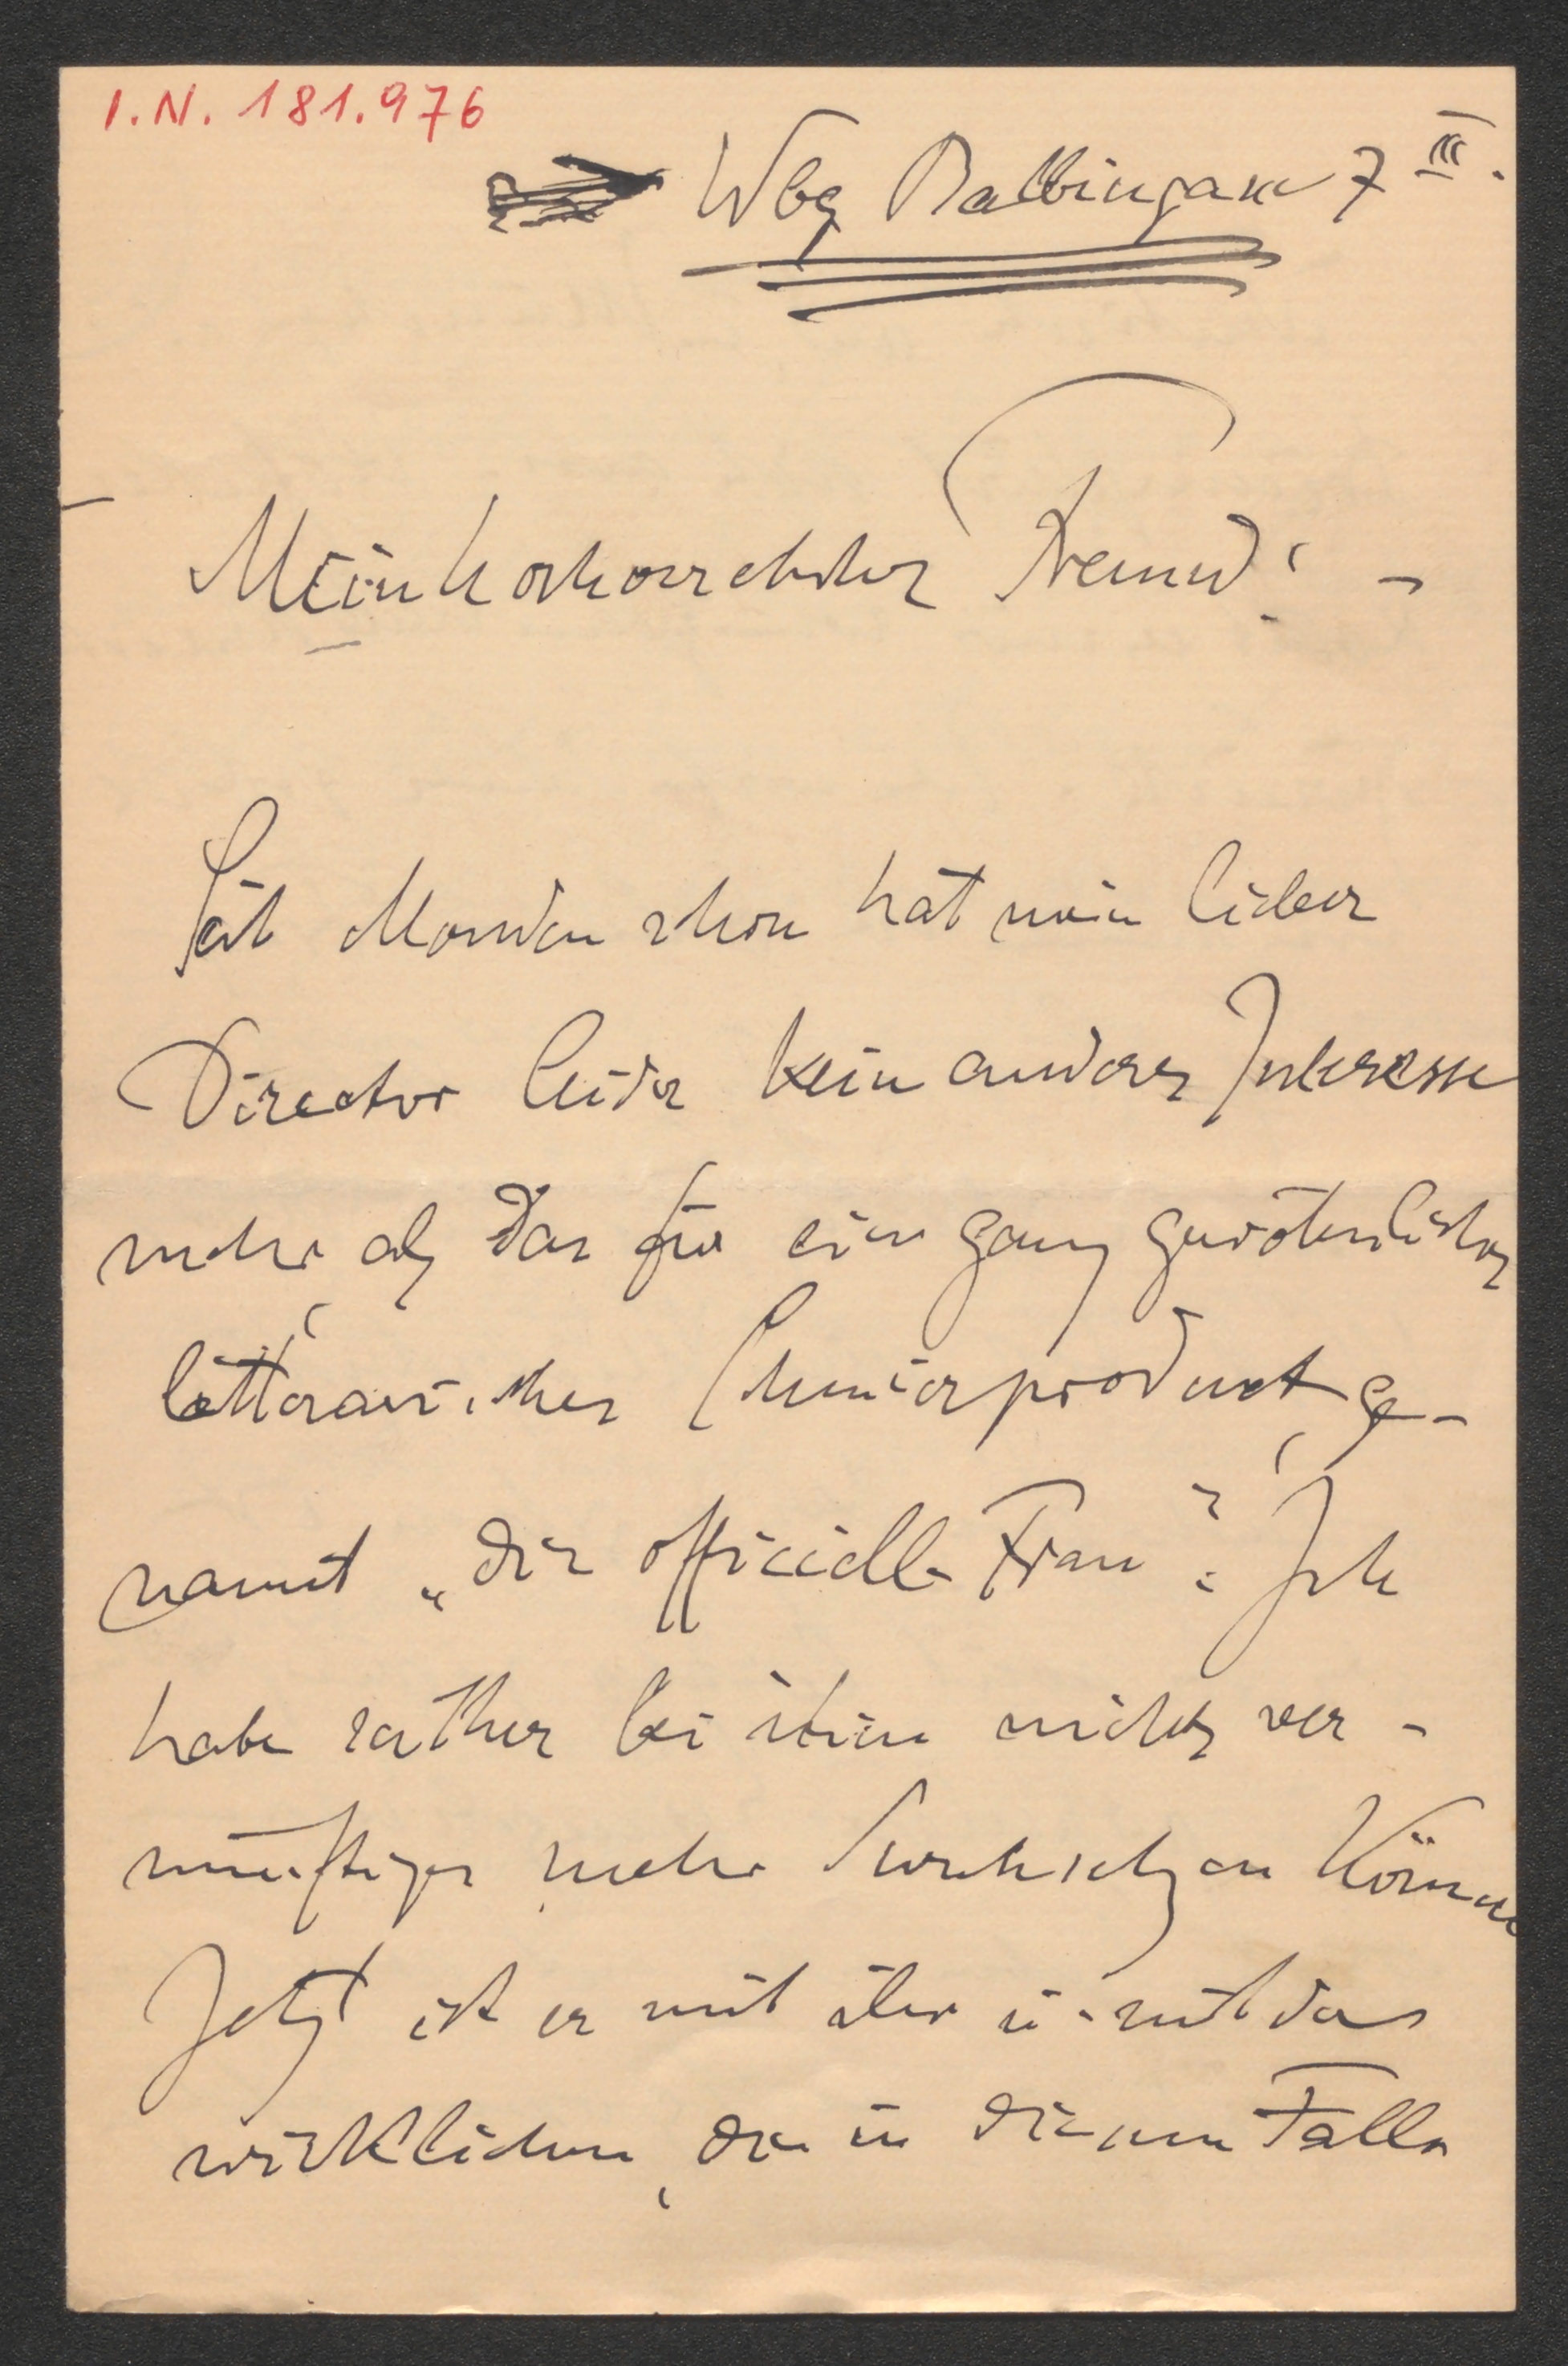 I.N. 181.976
Wbg Balbingasse 7 III.
Mein hochverehrter Freund! -
Seit Monden schon hat mein lieber
Director leider kein anderes Interesse
mehr als das für ein ganz gewöhnliches
litterarisches Schmierproduct, ge-
nannt „die officielle Frau". Ich
habe seither bei ihm nichts ver-
nünftiges mehr durchsetzen können
Jetzt ist er mit ihr u. mit der
wirklichen, die in diesem Falle